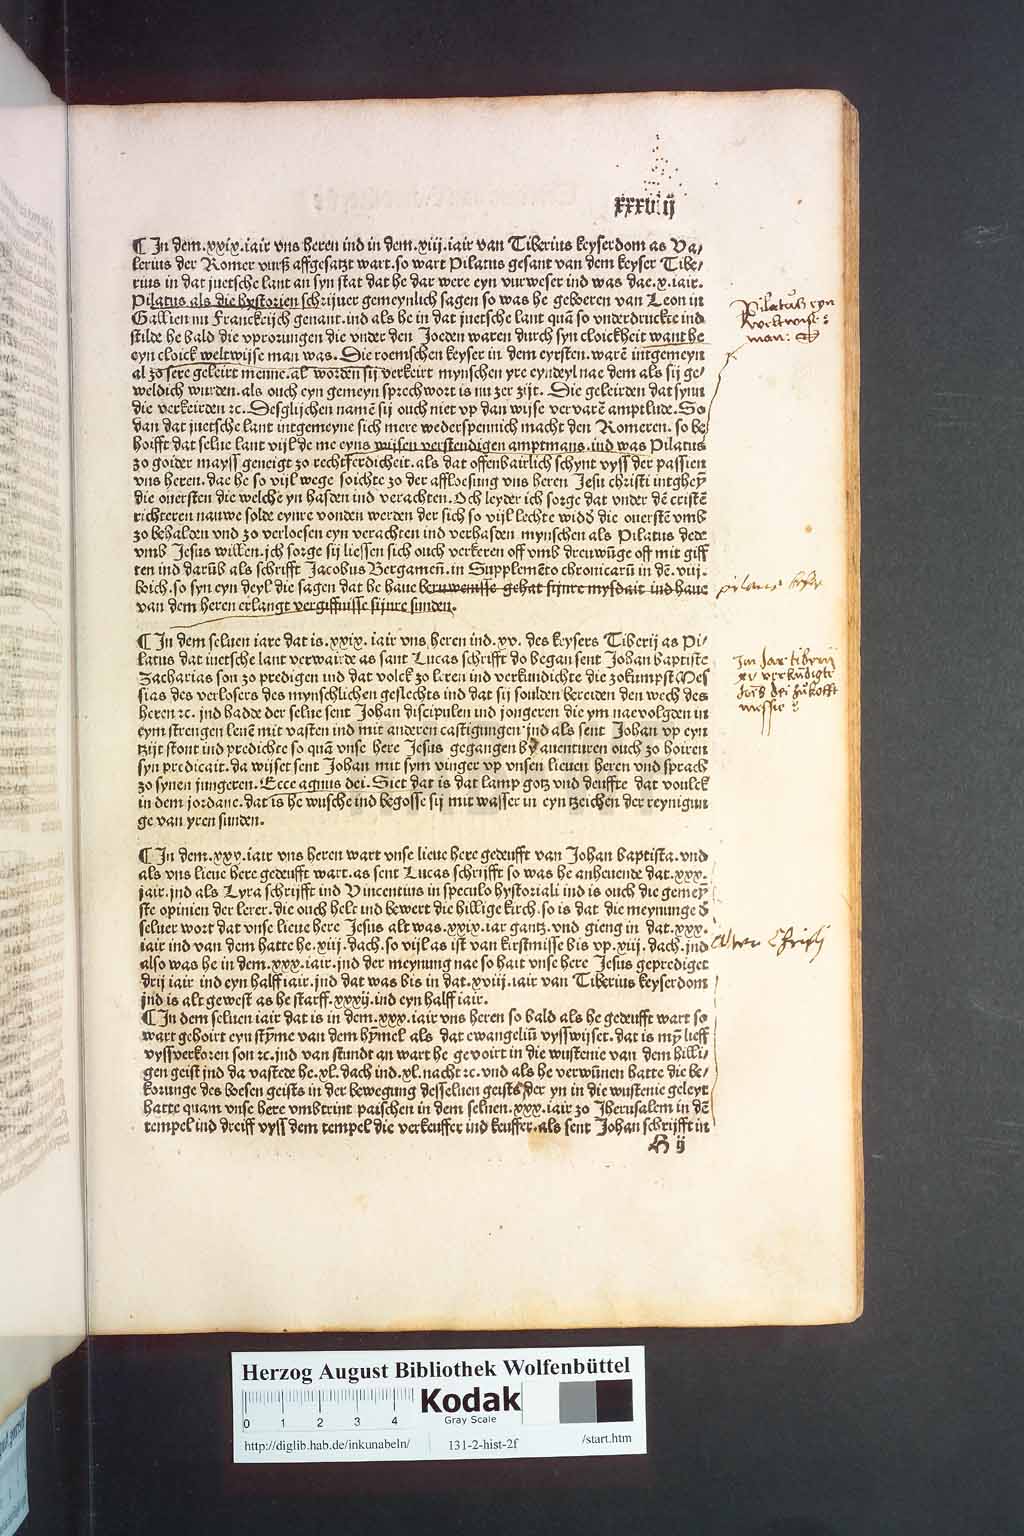 xxxviij
¶ In dem .xxix. iair vns heren ind in dem .xiij. iair van Tiberius keyserdom as Va⸗
lerius der Romer vurß affgesatzt wart. so wart Pilatus gesant van dem keyser Tibe⸗
rius in dat juetsche lant an syn stat dat he dar were eyn vurweser ind was dae .x. iair.
Pilatus als die hystorien schrijuer gemeynlich sagen so was he geboeren van Leon in
Gallien nu Franckrijch genant. ind als he in dat juetsche lant quā so vnderdruckte ind
stilde he bald die vprorungen die vnder den Joeden waren durch syn cloickheit want he
eyn cloick weltwijse man was. Die roemschen keyser in dem eyrsten. warē intgemeyn
al zo sere geleirt menne. al worden sij verkeirt mynschen yre eyndeyl nae dem als sij ge⸗
weldich wurden. als ouch eyn gemeyn sprechwort is nu zer zijt. Die geleirden dat synn
die verkeirden ⁊c. Desglijchen namē sij ouch niet vp dan wijse vervarē amptlude. So
dan dat juetsche lant intgemeyne sich mere wederspennich macht den Romeren. so be
hoifft dat selue lant vijl de me eyns wijsen verstendigen amptmans. ind was Pilatus
zo goider mayss geneigt zo rechtferdicheit. als dat offenbairlich schynt vyss der passien
vns heren. dae he so vijl wege soichte zo der affloesung vns heren Jesu christi intgheȳ
die ouersten die welche yn hasden ind verachten. Och leyder ich sorge dat vnder dē cristē
richteren nauwe solde eynre vonden werden der sich so vijl lechte widd die ouerstē vmb
zo behalden vnd zo verloesen eyn verachten ind verhasden mynschen als Pilatus dede
vmb Jesus willen. ich sorge sij liessen sich ouch verkeren off vmb dreuwūge off mit giff
ten ind darūb als schrifft Jacobus Bergamen̄. in Supplemēto chronicarū in dē .viij.
boich. so syn eyn deyl die sagen dat he haue beruwenisse gehat sijnre mysdait ind haue
van dem heren erlangt vergiffnisse sijnre sunden.
¶ In dem seluen iare dat is .xxix. iair vns heren ind .xv. des keysers Tiberij as Pi⸗
latus dat iuetsche lant verwairde as sant Lucas schrifft do began sent Johan baptiste
Zacharias son zo predigen ind dat volck zo leren ind verkundichte die zokumpst Mes
sias des verlosers des mynschlichen geslechts ind dat sij soulden bereiden den wech des
heren ⁊c. jnd hadde der selue sent Johan discipulen ind jongeren die ym naevolgden in
eym strengen leuē mit vasten ind mit anderen castigungen jnd als sent Johan vp eyn
tzijt stont ind predichte so quā vnse here Jesus gegangen by auenturen ouch zo hoiren
syn predicait. da wijset sent Johan mit sym vinger vp vnsen lieuen heren vnd sprach
zo synen jungeren. Ecce agnus dei. Siet dat is dat lamp gotz vnd deuffte dat voulck
in dem jordane. dat is he wusche ind begosse sij mit wasser in eyn tzeichen der reynigun
ge van yren sunden.
¶ In dem .xxx. iair vns heren wart vnse lieue here gedeufft van Johan baptista. vnd
als vns lieue here gedeufft wart. as sent Lucas schrijfft so was he anheuende dat .xxx.
jair. jnd als Lyra schrijfft ind Vincentius in speculo hystoriali ind is ouch die gemeȳ
ste opinien der lerer. die ouch helt ind bewert die hillige kirch. so is dat die meynunge d
seluer wort dat vnse lieue here Jesus alt was .xxix. iar gantz. vnd gieng in dat .xxx.
iair ind van dem hatte he .xiij. dach. so vijl as ist van kirstmisse bis vp .xiij. dach. jnd
also was he in dem .xxx. iair. jnd der meynung nae so hait vnse here Jesus geprediget
drij iair ind eyn halff iair. jnd dat was bis in dat .xviij. iair van Tiberius keyserdom
jnd is alt gewest as he starff .xxxij. ind eyn halff iair.
¶ In dem seluen iair dat is in dem .xxx. iair vns heren so bald als he gedeufft wart so
wart gehoirt eyn stȳme van dem hȳmel als dat ewangeliū vysswijset. dat is mȳ lieff
vyssverkoren son ⁊c. jnd van stundt an wart he gevoirt in die wustenie van dem hilli⸗
gen geist jnd da vastede he .xl. dach ind .xl. nacht ⁊c. vnd als he verwūnen hatte die be⸗
korunge des boesen geists in der bewegung desseluen geists der yn in die wustenie geleyt
hatte quam vnse here vmbtrint paischen in dem seluen .xxx. iair zo Jherusalem in dē
tempel ind dreiff vyss dem tempel die verkeuffer ind keuffer. als sent Johan schrijfft in
H ij
Pilatus eyn
weltwiser
man:
Im Jar tiberij
xv verkundigte
Joh dei zukofft
messie
Alter Christj
Herzog August Bibliothek Wolfenbüttel
Kodak
Gray Scale
0 1 2 3 4
http://diglib.hab.de/inkunabeln/ 131-2-hist-2f /start.htm